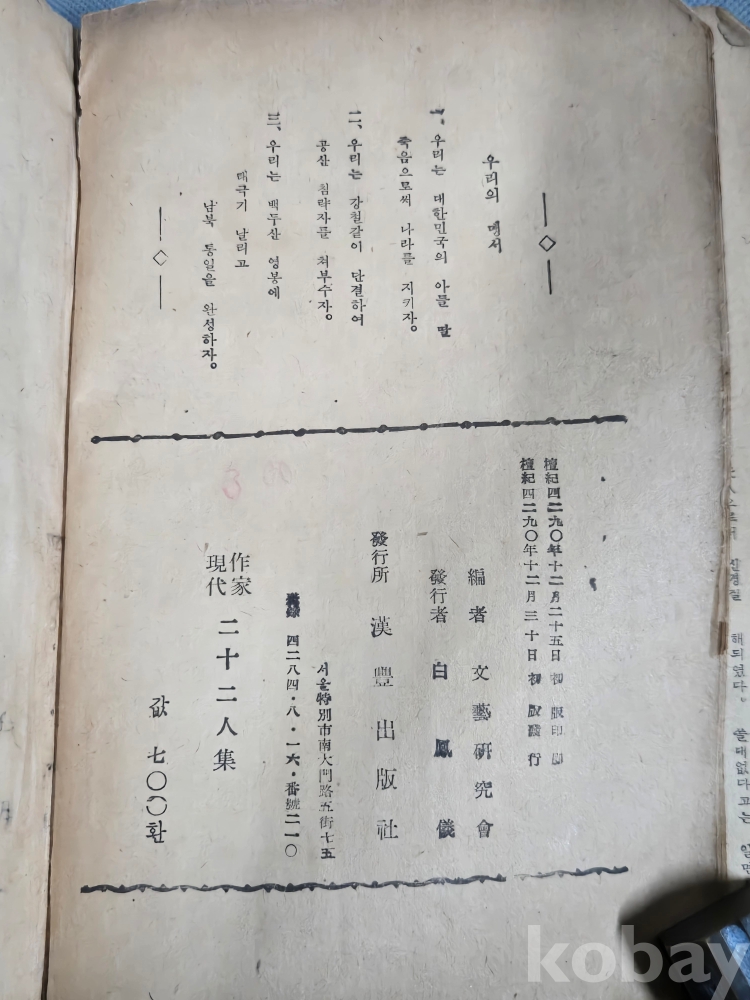 우리의 맹서
一、우리는 대한민국의 아들 딸
죽음으로써 나라를 지키자。
二、우리는 강철같이 단결하여
공산 침략자를 쳐부수자。
三、우리는 백두산 영봉에
태극기 날리고
남북 통일을 완성하자。
檀紀四二九〇年十二月二十五日 初版印刷
檀紀四二九〇年十二月三十日 初版發行
編者 文藝硏究會
發行者 白鳳儀
發行所 漢豐出版社
서울特別市南大門路五街七五
登錄 四二八四・八・一六・番號二一〇
現代作家 二十二人集
값 七〇〇환
3
해되었다。
쓸데없다고는
kobay